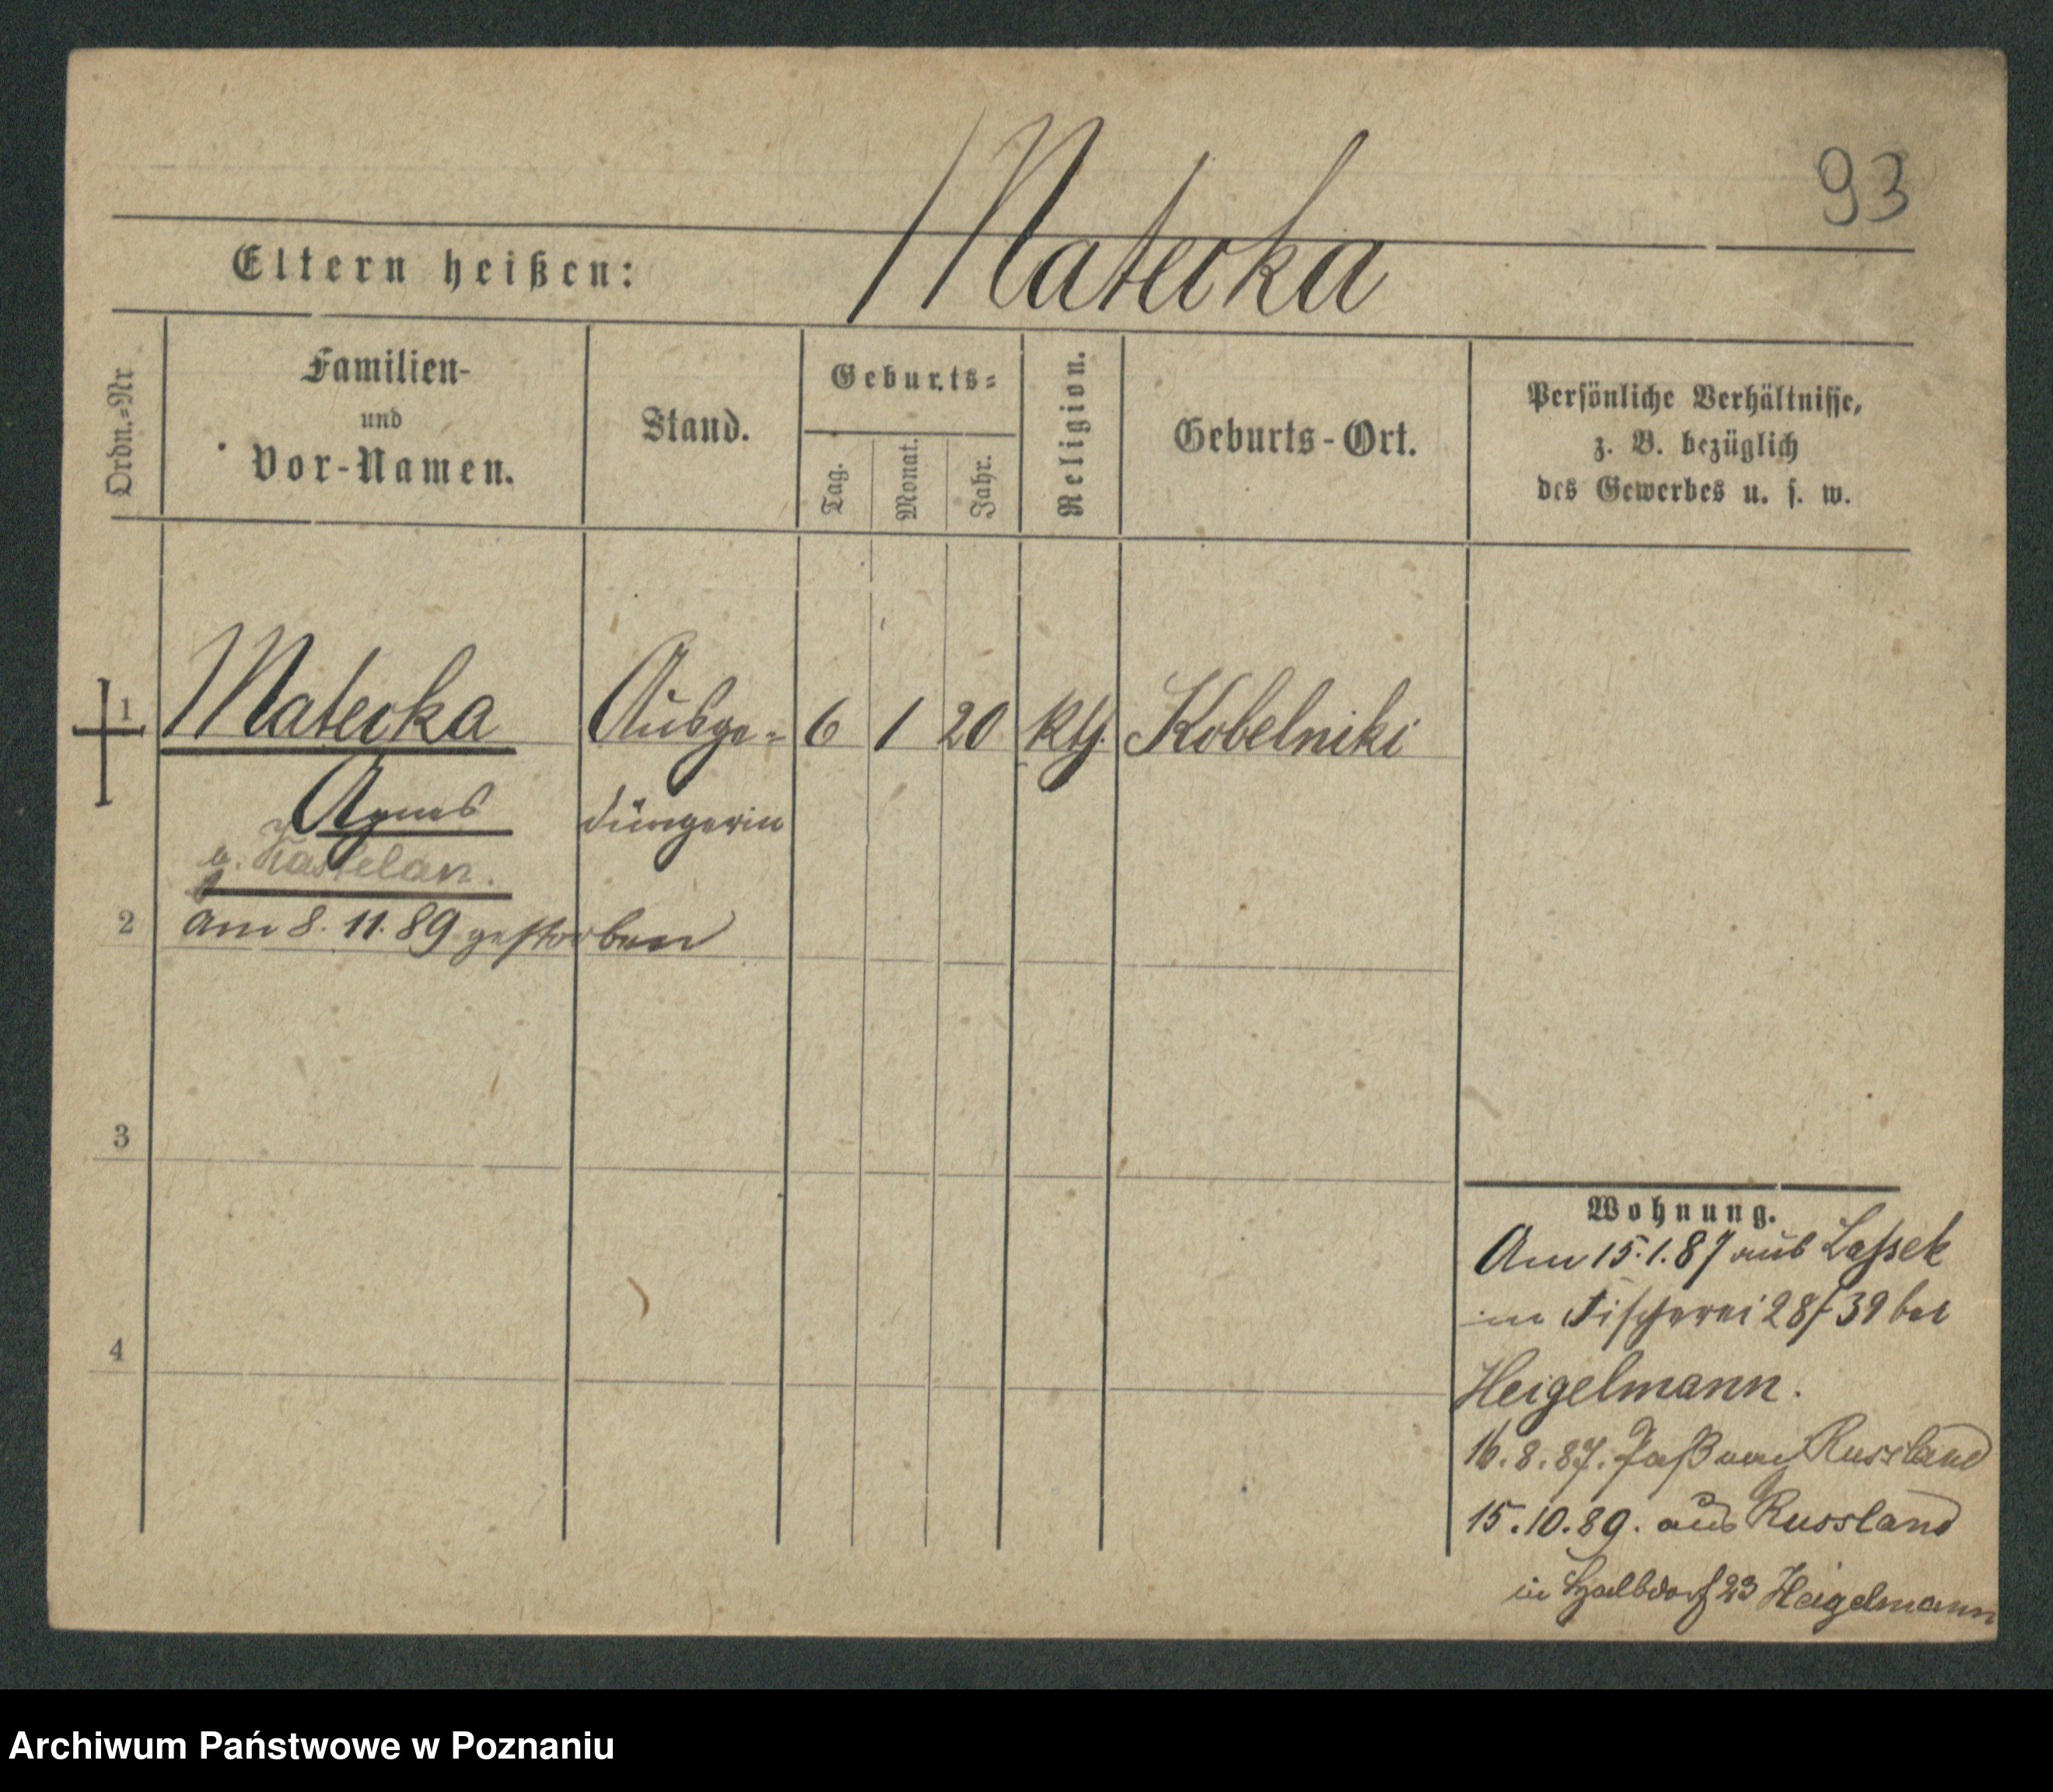 93
Matecka
Eltern heißen:
Ordn.-Nr
Familien-
und
Vor-Namen.
Stand.
Geburts-
Tag.
Monat.
Jahr.
Religion.
Geburts-Ort.
Persönliche Verhältnisse,
z. B. bezüglich
des Gewerbes u. s. w.
1 Matecka Ausge- 6 1 20 kth. Kobelniki
Agnes dingerin
g. Kastelan.
2 am 8. 11. 89 gestorben
3
4
Wohnung.
Am 15.1.87 aus Lassek
in Fischerei 28/39 bei
Heigelmann.
16.8.87. Paß nach Russland
15.10.89. aus Russland
in Halbdorf 23 Heigelmann
Archiwum Państwowe w Poznaniu